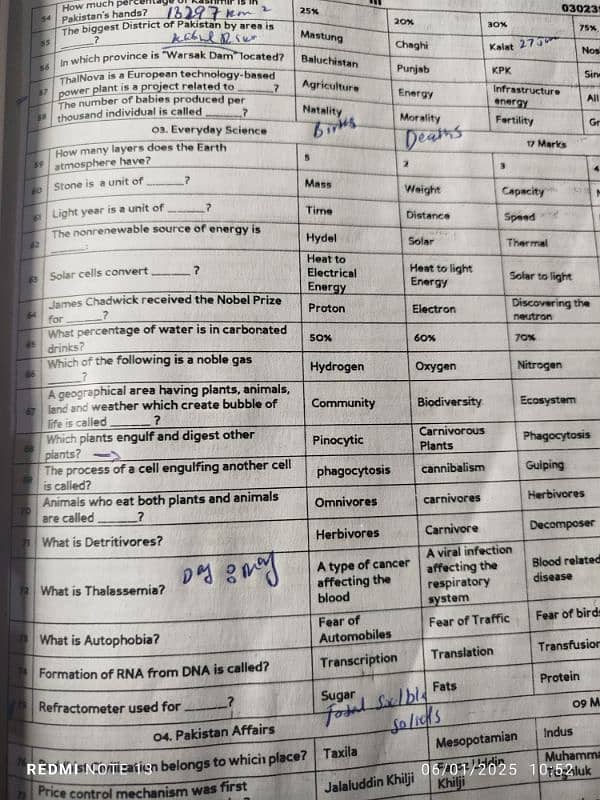 54 How much percentage of Kashmir is in Pakistan's hands? 13297 km 2 25% 20% 30% 75%
55 The biggest District of Pakistan by area is ______? Mastung Chaghi Kalat
56 In which province is "Warsak Dam" located? Baluchistan Punjab KPK
57 ThalNova is a European technology-based power plant is a project related to ______? Agriculture Energy Infrastructure energy All
58 The number of babies produced per thousand individual is called ______? Natality Morality Fertility
Births Deaths
03. Everyday Science 17 Marks
59 How many layers does the Earth atmosphere have? 5 2 3 4
60 Stone is a unit of ______? Mass Weight Capacity
61 Light year is a unit of ______? Time Distance Speed
62 The nonrenewable source of energy is ______: Hydel Solar Thermal
63 Solar cells convert ______ ? Heat to Electrical Energy Heat to light Energy Solar to light
64 James Chadwick received the Nobel Prize for ______? Proton Electron Discovering the neutron
65 What percentage of water is in carbonated drinks? 50% 60% 70%
66 Which of the following is a noble gas ______? Hydrogen Oxygen Nitrogen
67 A geographical area having plants, animals, land and weather which create bubble of life is called ______ ? Community Biodiversity Ecosystem
68 Which plants engulf and digest other plants? Pinocytic Carnivorous Plants Phagocytosis
69 The process of a cell engulfing another cell is called? phagocytosis cannibalism Gulping
70 Animals who eat both plants and animals are called ______? Omnivores carnivores Herbivores
71 What is Detritivores? Herbivores Carnivore Decomposer
72 What is Thalassemia? A type of cancer affecting the blood A viral infection affecting the respiratory system Blood related disease
Day 8 May
73 What is Autophobia? Fear of Automobiles Fear of Traffic Fear of birds
74 Formation of RNA from DNA is called? Transcription Translation Transfusion
75 Refractometer used for ______? Sugar Fats Protein
solids
04. Pakistan Affairs 09 M
belongs to which place? Taxila Mesopotamian Indus
Price control mechanism was first Jalaluddin Khilji Khilji
REDMI NOTE 13 06/01/2025 10:52